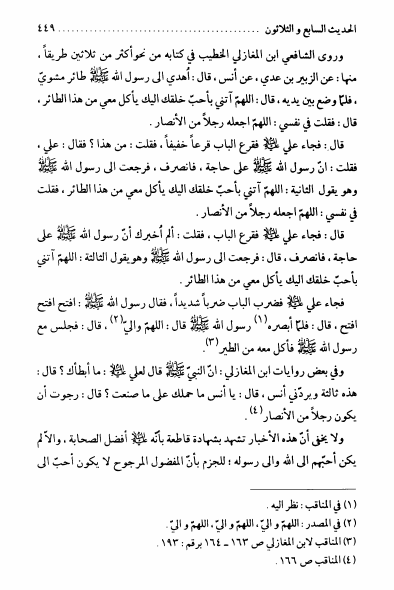 الحديث السابع و الثلاثون ........................................ ٤٤٩
وروى الشافعي ابن المغازلي الخطيب في كتابه من نحو أكثر من ثلاثين طريقاً ،
منها : عن الزبير بن عدي ، عن أنس ، قال : أُهدي الى رسول الله ﷺ طائر مشويّ
، فلمّا وضع بين يديه ، قال : اللهمّ آتني بأحبّ خلقك اليك يأكل معي من هذا الطائر ،
قال : فقلت في نفسي : اللهمّ اجعله رجلاً من الأنصار .
قال : فجاء علي عليه السلام فقرع الباب قرعاً خفيفاً ، فقلت : من هذا ؟ فقال : علي ،
فقلت : انّ رسول الله ﷺ على حاجة ، فانصرف ، فرجعت الى رسول الله ﷺ
وهو يقول الثانية : اللهمّ آتني بأحبّ خلقك اليك يأكل معي من هذا الطائر ، فقلت
في نفسي : اللهمّ اجعله رجلاً من الأنصار .
قال : فجاء علي عليه السلام فقرع الباب ، فقلت : ألم أُخبرك أنّ رسول الله ﷺ على
حاجة ، فانصرف ، قال : فرجعت الى رسول الله ﷺ وهو يقول الثالثة : اللهمّ آتني
بأحبّ خلقك اليك يأكل معي من هذا الطائر .
فجاء علي عليه السلام فضرب الباب ضرباً شديداً ، فقال رسول الله ﷺ : افتح افتح
افتح ، قال : فلمّا أبصره (١) رسول الله ﷺ قال : اللهمّ واليّ (٢) ، قال : فجلس مع
رسول الله ﷺ فأكل معه من الطير (٣).
وفي بعض روايات ابن المغازلي : انّ النبيّ ﷺ قال لعلي عليه السلام : ما أبطأك ؟ قال :
هذه ثالثة ويردّني أنس ، قال : يا أنس ما حملك على ما صنعت ؟ قال : رجوت أن
يكون رجلاً من الأنصار (٤) .
ولا يخفى أنّ هذه الأخبار تشهد بشهادة قاطعة بأنّه عليه السلام أفضل الصحابة ، والّا لم
يكن أحبّهم الى الله والى رسوله ؛ للجزم بأنّ المفضول المرجوح لا يكون أحبّ الى
(١) في المناقب : نظر اليه .
(٢) في المصدر : اللهمّ و اليّ ، اللهمّ و اليّ ، اللهمّ و اليّ .
(٣) المناقب لابن المغازلي ص ١٦٣ ـ ١٦٤ برقم : ١٩٣ .
(٤) المناقب ص ١٦٦ .